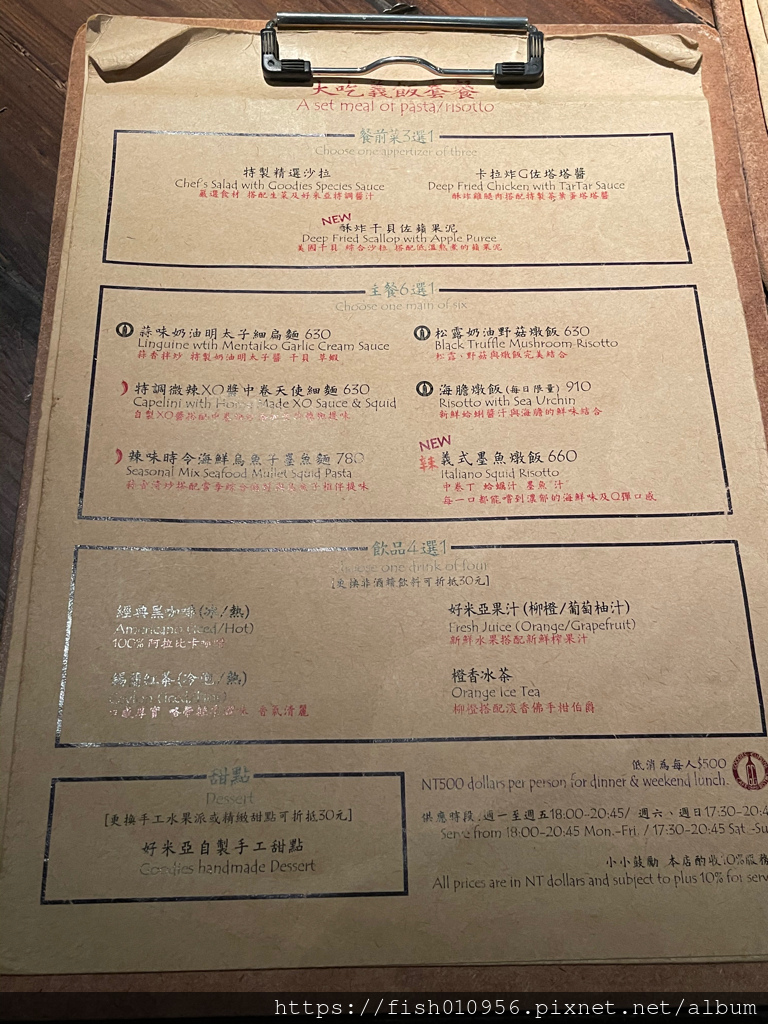 大吃義飯套餐
A set meal of pasta/risotto
餐前菜3選1
Choose one appertizer of three
特製精選沙拉
Chef's Salad with Goodies Species Sauce
嚴選食材 搭配生菜及好米亞特調醬汁
卡拉炸G佐塔塔醬
Deep Fried Chicken with TarTar Sauce
酥炸雞腿肉搭配特製蒔蘿蛋塔塔醬
NEW
酥炸干貝佐蘋果泥
Deep Fried Scallop with Apple Puree
美國干貝 綜合沙拉 搭配低溫熬煮的蘋果泥
主餐6選1
Choose one main of six
蒜味奶油明太子細扁麵 630
Linguine wtih Mentaiko Garlic Cream Sauce
蒜香拌炒 特製奶油明太子醬 干貝 草蝦
松露奶油野菇燉飯 630
Black Truffle Mushroom Risotto
松露、野菇與燉飯完美結合
特調微辣XO醬中卷天使細麵 630
Capelini with House Made XO Sauce & Squid
自製XO醬搭配中卷
海膽燉飯 (每日限量) 910
Risotto with Sea Urchin
新鮮蛤蜊醬汁與海膽的鮮味結合
辣味時令海鮮烏魚子墨魚麵 780
Seasonal Mix Seafood Mullet Squid Pasta
蒜香清炒搭配當季綜合海鮮 烏魚子相伴提味
NEW
辣 義式墨魚燉飯 660
Italiano Squid Risotto
中卷丁 蛤蠣汁 墨魚汁
每一口都能嚐到濃郁的海鮮味及Q彈口感
飲品4選1
Choose one drink of four
[更換非酒精飲料可折抵30元]
經典黑咖啡(冰/熱)
Americano (Iced/Hot)
100% 阿拉比卡咖啡
好米亞果汁(柳橙/葡萄柚汁)
Fresh Juice (Orange/Grapefruit)
新鮮水果搭配新鮮榨果汁
錫蘭紅茶(冷泡/熱)
橙香冰茶
Orange Ice Tea
柳橙搭配淡香佛手柑伯爵
甜點
Dessert
[更換手工水果派或精緻甜點可折抵30元]
好米亞自製手工甜點
Goodies handmade Dessert
低消為每人$500
NT500 dollars per person for dinner & weekend lunch.
供應時段:週一至週五18:00-20:45/ 週六、週日17:30-20:4
Serve from 18:00-20:45 Mon.-Fri. / 17:30-20:45 Sat.-Su
小小鼓勵 本店酌收10%服務
All prices are in NT dollars and subject to plus 10% for serv
https://fish010956.pixnet.net/album